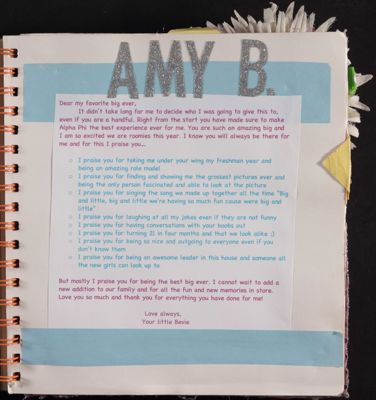 AMY B.
Dear my favorite big ever,
It didn't take long for me to decide who I was going to give this to,
even if you are a handful. Right from the start you have made sure to make
Alpha Phi the best experience ever for me. You are such an amazing big and
I am so excited we are roomies this year. I know you will always be there for
me and for this I praise you...
o I praise you for taking me under your wing my freshmen year and
being an amazing role model
o I praise you for finding and showing me the grossest pictures ever and
being the only person fascinated and able to look at the picture
o I praise you for singing the song we made up together all the time "Big
and little, big and little we're having so much fun cause were big and
little"
o I praise you for laughing at all my jokes even if they are not funny
o I praise you for having conversations with your boobs out
o I praise you for turning 21 in four months and that we look alike :)
o I praise you for being so nice and outgoing to everyone even if you
don't know them
o I praise you for being an awesome leader in this house and someone all
the new girls can look up to
But mostly I praise you for being the best big ever. I cannot wait to add a
new addition to our family and for all the fun and new memories in store.
Love you so much and thank you for everything you have done for me!
Love always,
Your little Bevie